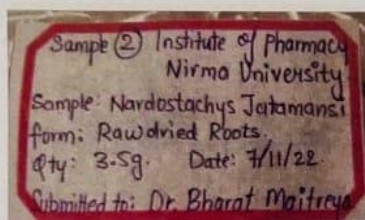 Sample ② Institute of Pharmacy
Nirma University
Sample: Nardostachys Jatamansi
form: Raw dried Roots.
Qty: 3.5g. Date: 7/11/22
Submitted to: Dr. Bharat Maitreya